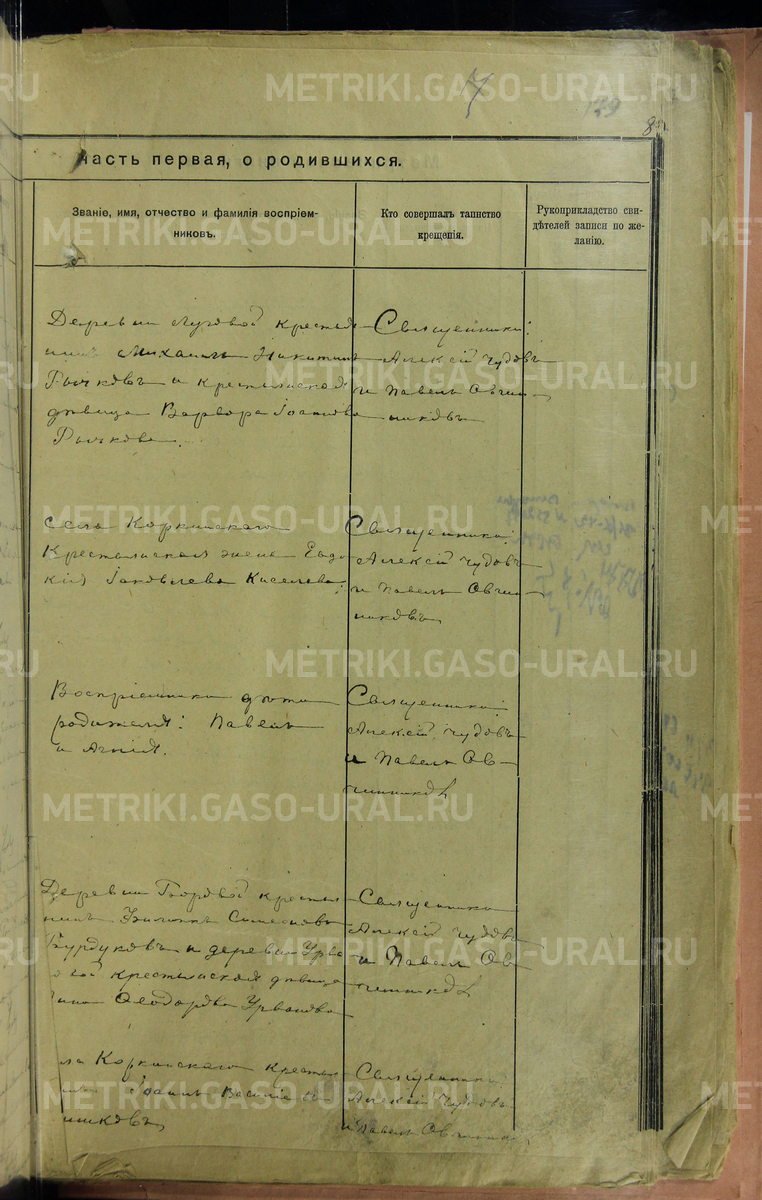 7
129
8
часть первая, о родившихся.
Званіе, имя, отчество и фамилія воспріем-
никовъ.
Кто совершалъ таинство
крещенія.
Рукоприкладство сви-
дѣтелей записи по же-
ланію.
Деревни Луговой крестья-
нинъ Михаилъ Никитинъ
Рычковъ и крестьянская
дѣвица Варвара Іоаннова
Рычкова.
Священники:
Алексій Чудовъ
и Павелъ Овчин-
никовъ
Села Коркинскаго
Крестьянская жена Евдо
кія Іаковлева Киселева;
Священники:
Алексій Чудовъ
и Павелъ Овчин-
никовъ
Воспріемники дѣти
родителя: Павелъ
и Агнія.
Священники:
Алексій Чудовъ
и Павелъ Ов-
чинниковъ
Деревни крестья
нинъ Филиппъ Симеоновъ
Бурдуковъ и деревни Урва
вой крестьянская дѣвица
Ѳеодорова Урванова
Священники
Алексій Чудовъ
и Павелъ Ов-
чинниковъ
ла Коркинскаго Крестья
Іоаннъ Василіевъ
никовъ
Священники:
Алексій Чудовъ
и Павелъ Овчинни
METRIKI.GASO-URAL.RU